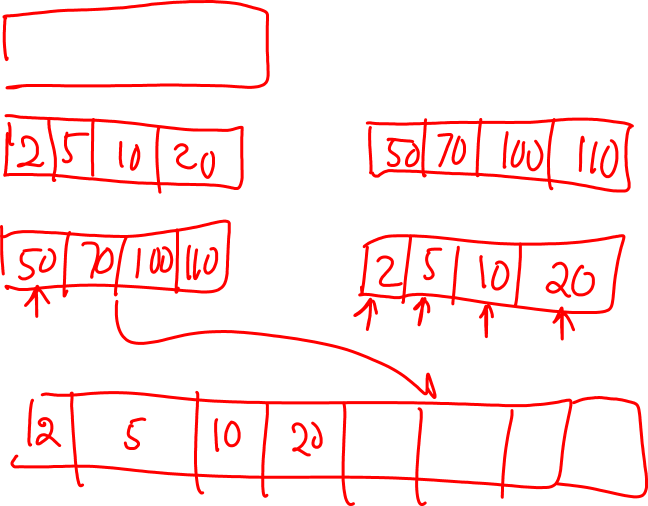 2 5 10 20
50 70 100 110
50 70 100 110
2 5 10 20
2 5 10 20